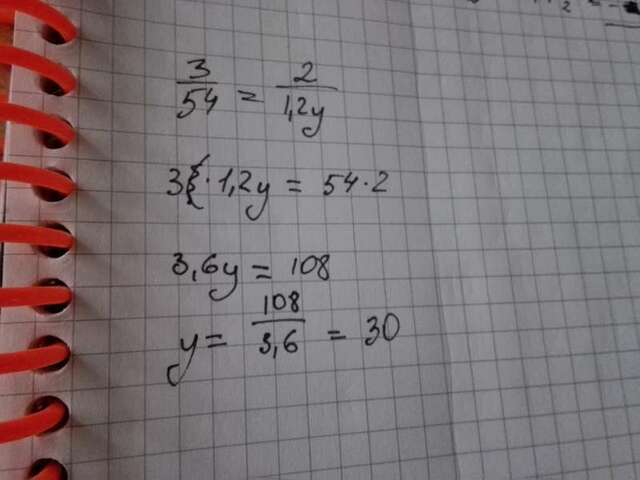 3/54 = 2/1,2y
3 · 1,2y = 54 · 2
3,6y = 108
y = 108/3,6 = 30